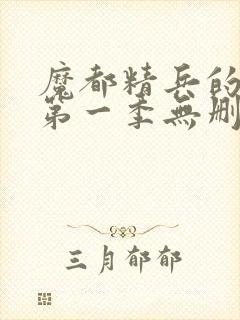 魔都精兵的
第一季無刪
三月郁郁